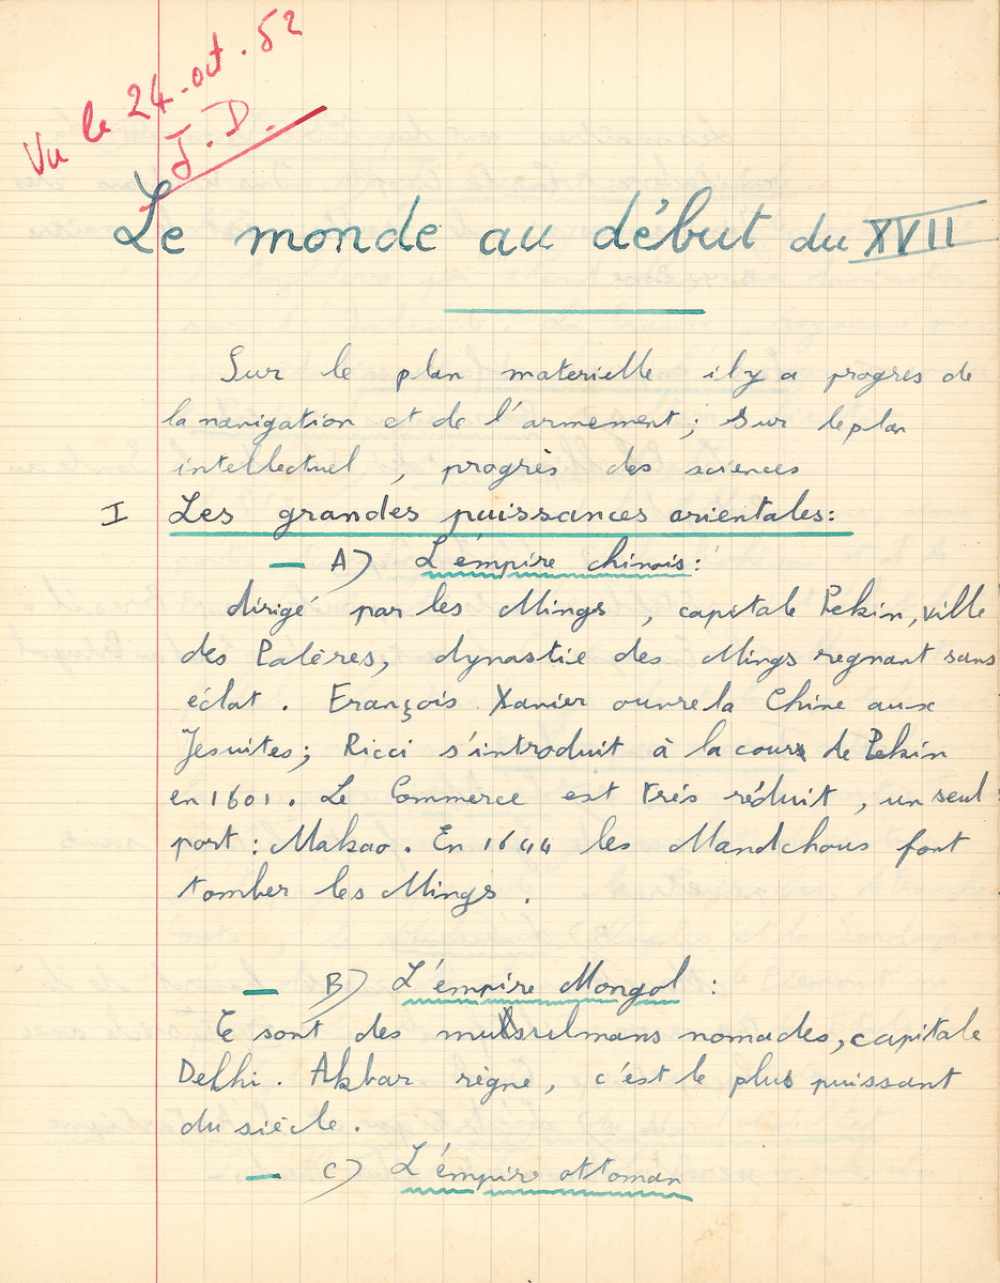 Vu le 24 - oct. 52
J. D.
Le monde au début du XVII
Sur le plan materielle il y a progres de
la navigation et de l'armement ; sur le plan
intellectuel , progrès des sciences
I Les grandes puissances orientales :
— A) L'émpire chinois :
dirigé par les Mings , capitale Pekin, ville
des Palères, dynastie des Mings regnant sans
éclat . François Xavier ouvre la Chine aux
Jesuites ; Ricci s'introduit à la cour de Pekin
en 1601 . Le Commerce est très réduit , un seul
port : Makao . En 1644 les Mandchous font
tomber les Mings .
— B) L'émpire Mongol :
Ce sont des musulmans nomades, capitale
Delhi . Akbar règne , c'est le plus puissant
du siècle .
— C) L'émpire ottoman